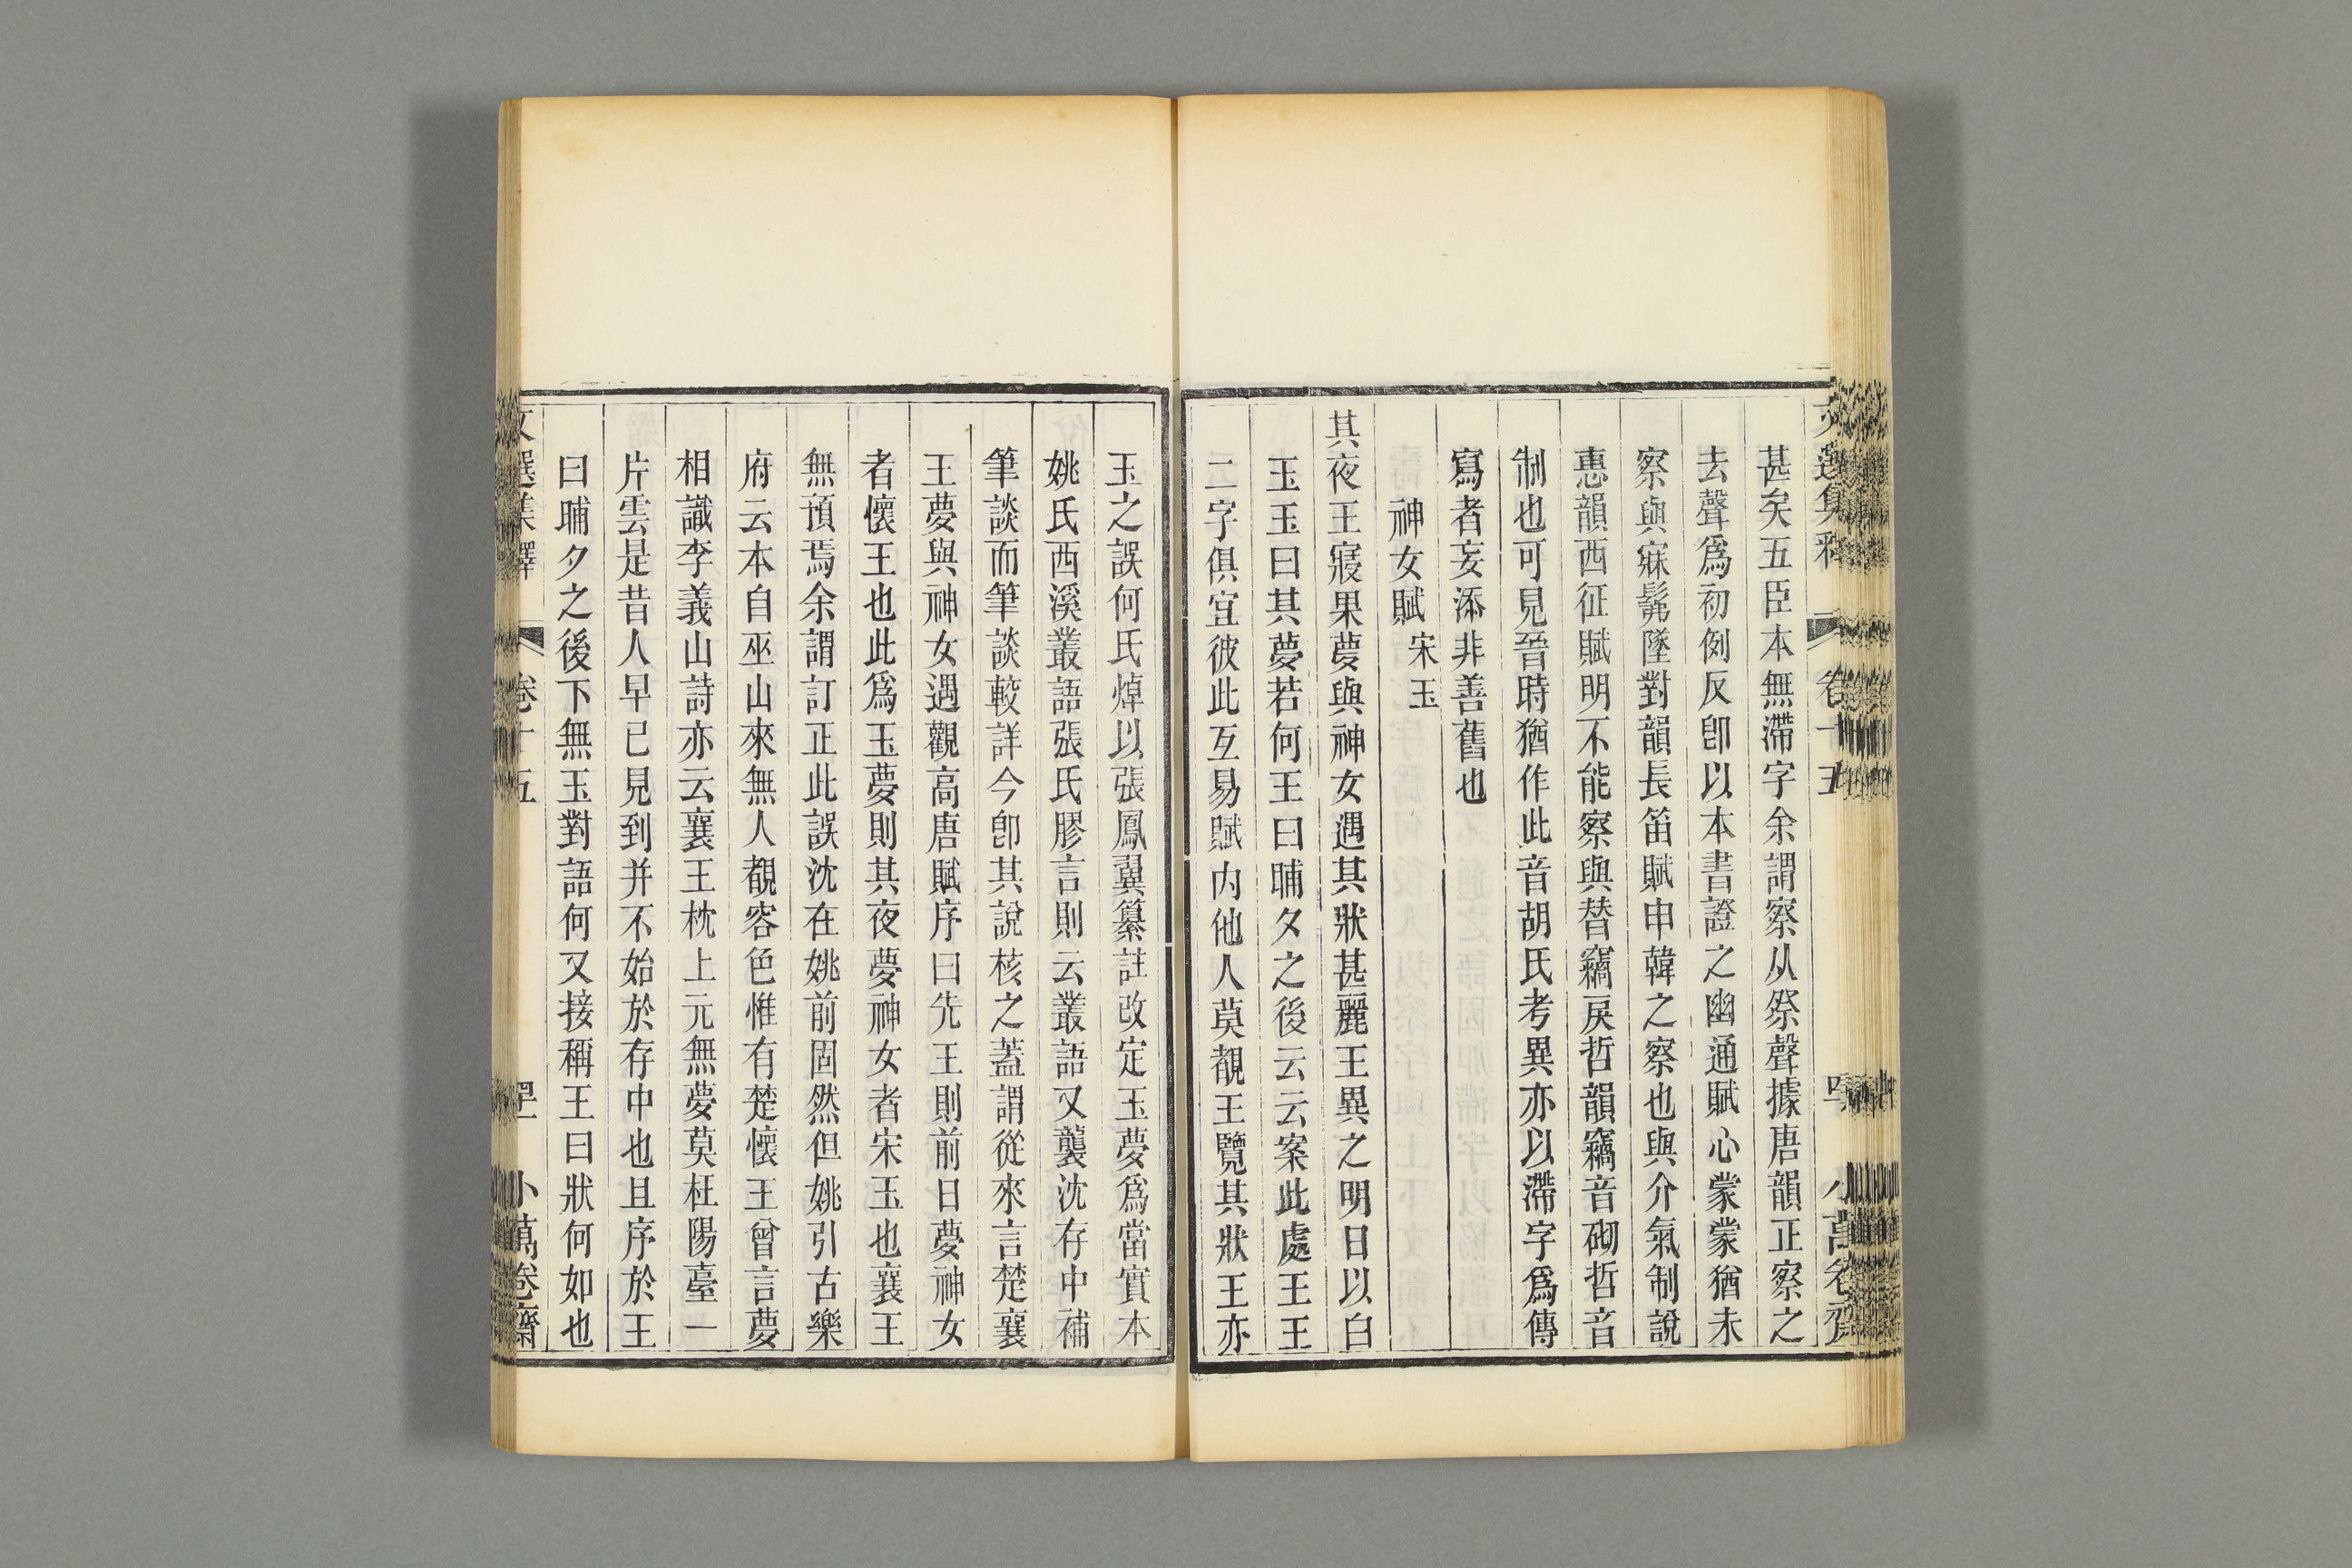 甚矣五臣本無滯字余謂察从祭聲據唐韻正察之
去聲爲初例反卽以本書證之幽通賦心蒙蒙猶未
察與寐髴墜對韻長笛賦申韓之察也與介氣制說
惠韻西征賦明不能察與替竊戾哲韻竊音砌哲音
制也可見晉時猶作此音胡氏考異亦以滯字爲傳
寫者妄添非善舊也
神女賦 宋玉
其夜王寢果夢與神女遇其狀甚麗王異之明日以白
玉玉曰其夢若何王曰晡夕之後云云案此處王玉
二字俱宜彼此互易賦内他人莫覩王覽其狀王亦
玉之誤何氏焯以張鳳翼纂註改定玉夢爲當實本
姚氏西溪叢語張氏膠言則云叢語又襲沈存中補
筆談而筆談較詳今卽其說核之蓋謂從來言楚襄
王夢與神女遇觀高唐賦序曰先王則前日夢神女
者懷王也此爲玉夢則其夜夢神女者宋玉也襄王
無預焉余謂訂正此誤沈在姚前固然但姚引古樂
府云本自巫山來無人覩容色惟有楚懷王曾言夢
相識李義山詩亦云襄王枕上元無夢莫枉陽臺一
片雲是昔人早已見到并不始於存中也且序於王
曰晡夕之後下無玉對語何又接稱王曰狀何如也
文選集釋 卷十五 小萬卷齋